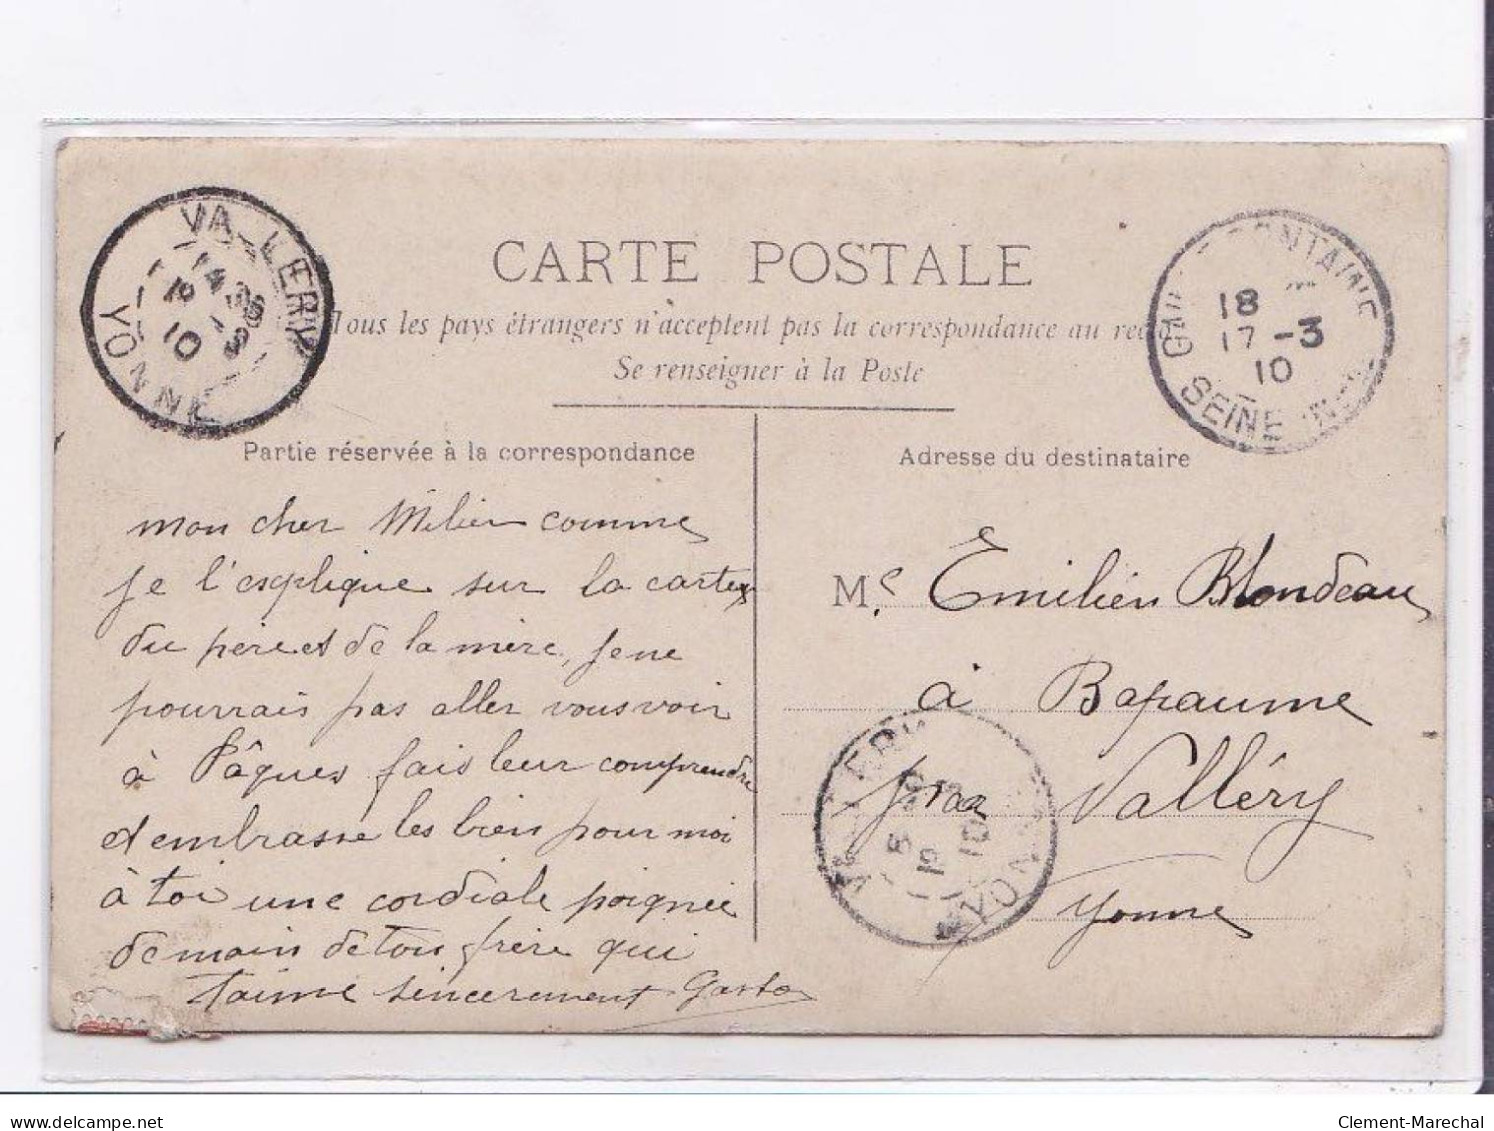 VALLERY
14 35
19 - 3
10
YONNE
GUI FONTAINE
18
17 - 3
10
SEINE
CARTE POSTALE
Tous les pays étrangers n'acceptent pas la correspondance au recto
Se renseigner à la Poste
Partie réservée à la correspondance
mon cher Milien comme
je l'esplique sur la carte
du père et de la mère, je ne
pourrais pas aller vous voir
à Pâques fais leur comprendre
et embrasse les bien pour moi
à toi une cordiale poignée
de main de ton frère qui
t'aime sincerement Gaston
Adresse du destinataire
M.r Emilien Blondeau
à Bapaume
par Valléry
Yonne
VALLERY
19
10
YONNE
delcampe.net
Clement-Marechal